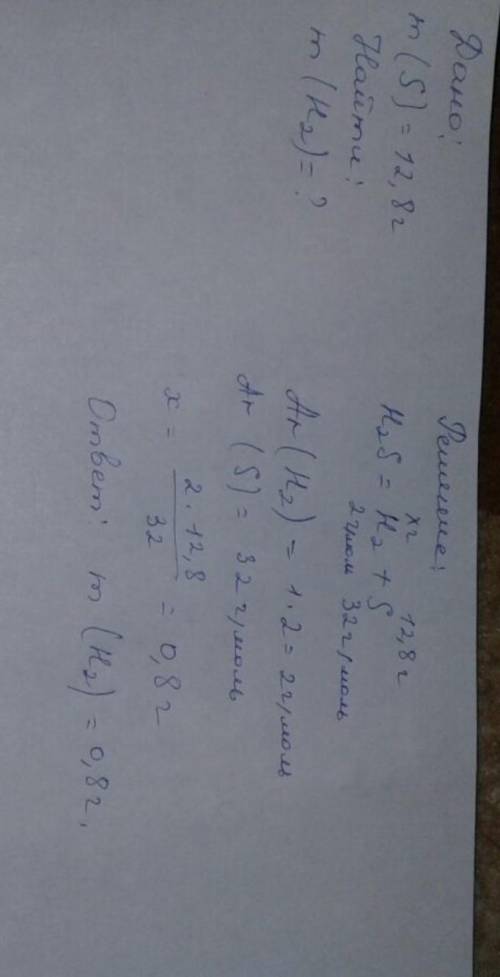 Дано:
m(S) = 12,8г
Найти:
m(H₂) = ?
Решение:
xг 12,8г
H₂S = H₂ + S
2г/мол 32г/моль
Ar(H₂) = 1·2 = 2г/моль
Ar(S) = 32г/моль
x = 2·12,8 / 32 = 0,8г
Ответ: m(H₂) = 0,8г.